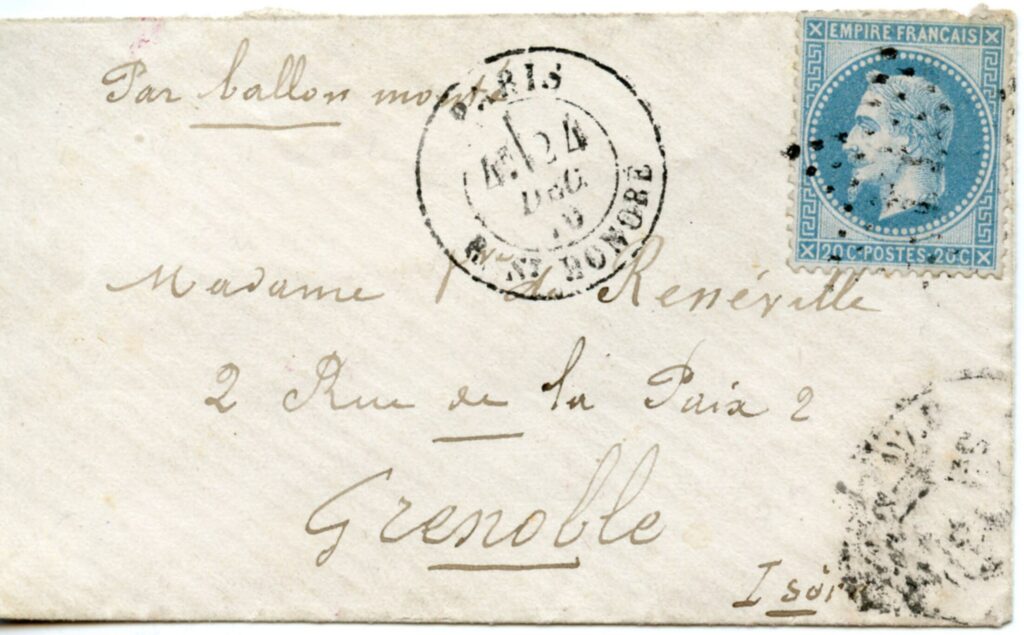 EMPIRE FRANÇAIS
Par ballon monté
PARIS
4E 24
DEC.
70
R. ST HONORÉ
20 C · POSTES · 20 C
Madame Vve de Renéville
2 Rue de la Paix 2
Grenoble
Isère